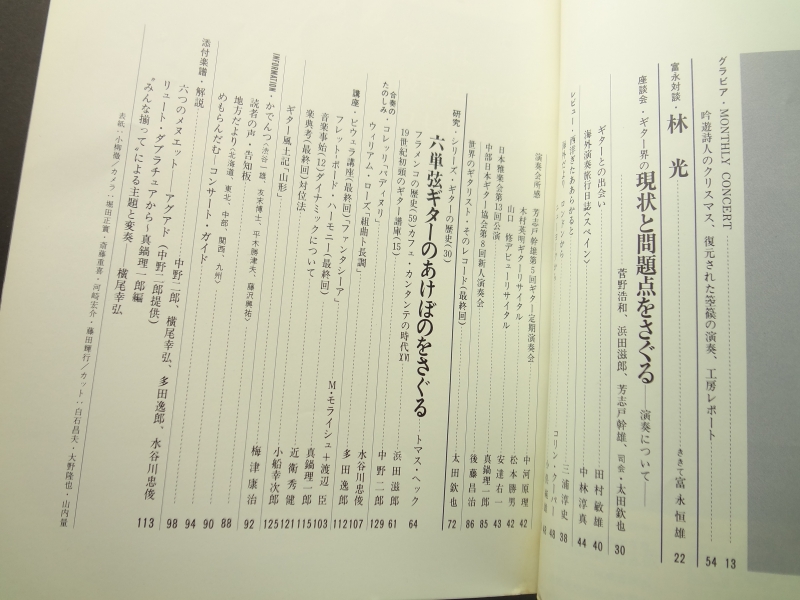 グラビア・MONTHLY CONCERT 13
吟遊詩人のクリスマス、復元された箜篌の演奏、工房レポート 54
富永対談・林 光 ききて 富永恒雄 22
座談会・ギター界の現状と問題点をさぐる―演奏について―
菅野浩和、浜田滋郎、芳志戸幹雄、司会・太田欽也 30
ギターとの出会い 田村敏雄 40
海外演奏旅行日誌〈スペイン〉 中林淳真 44
レビュー・西洋ぎたああらかると 三浦淳史 38
コリン・クーパー 48
演奏会所感 芳志戸幹雄第5回ギター定期演奏会 中河原理 42
木村英明ギターリサイタル 松本勝男 42
山口 修アビューリサイタル 安達右一 43
日本雅楽会第13回公演
中部日本ギター協会第8回新人演奏会 真鍋理一郎 85
世界のギタリスト・そのレコード(最終回) 後藤昌治 86
研究・シリーズ・ギターの歴史(30) 太田欽也 72
六単弦ギターのあけぼのをさぐる トマス・ヘック 64
フラメンコの歴史(59)カフェ・カンタンテの時代XVI 浜田滋郎 61
19世紀初頭のギター講座(15) 中野二郎 129
合奏のたのしみ・コレッリ「バディヌリ」 水谷川忠俊 107
ウィリアム・ローズ「組曲ト長調」 多田逸郎 112
講座・ビウェラ講座(最終回)「ファンタシーア」 M・モライシュ+渡辺 臣 103
フレットボード・ハーモニー(最終回) 真鍋理一郎 115
音楽事始(12)ダイナミックについて 近衛秀健 121
楽典考(最終回)対位法 小船幸次郎 125
ギター風土記「山形」 梅津康治 92
INFORMATION・かでんつ(渋谷一雄、友末博士、平木勝津夫、藤沢興祐)
読者の声・告知板
地方だより(北海道、東北、中部、関西、九州) 88
めもらんだむ・コンサート・ガイド 90
添付楽譜・解説 中野二郎、横尾幸弘、多田逸郎、水谷川忠俊 94
六つのメヌエット アグアド(中野二郎提供) 98
リュート・タブラチュアから〜真鍋理一郎編
“みんな揃って”による主題と変奏 横尾幸弘 113
表紙・小柳徹/カメラ・堀田正實・斎藤重喜・河崎宏介・藤田輝行/カット・白石昌夫・大野隆也・山内量